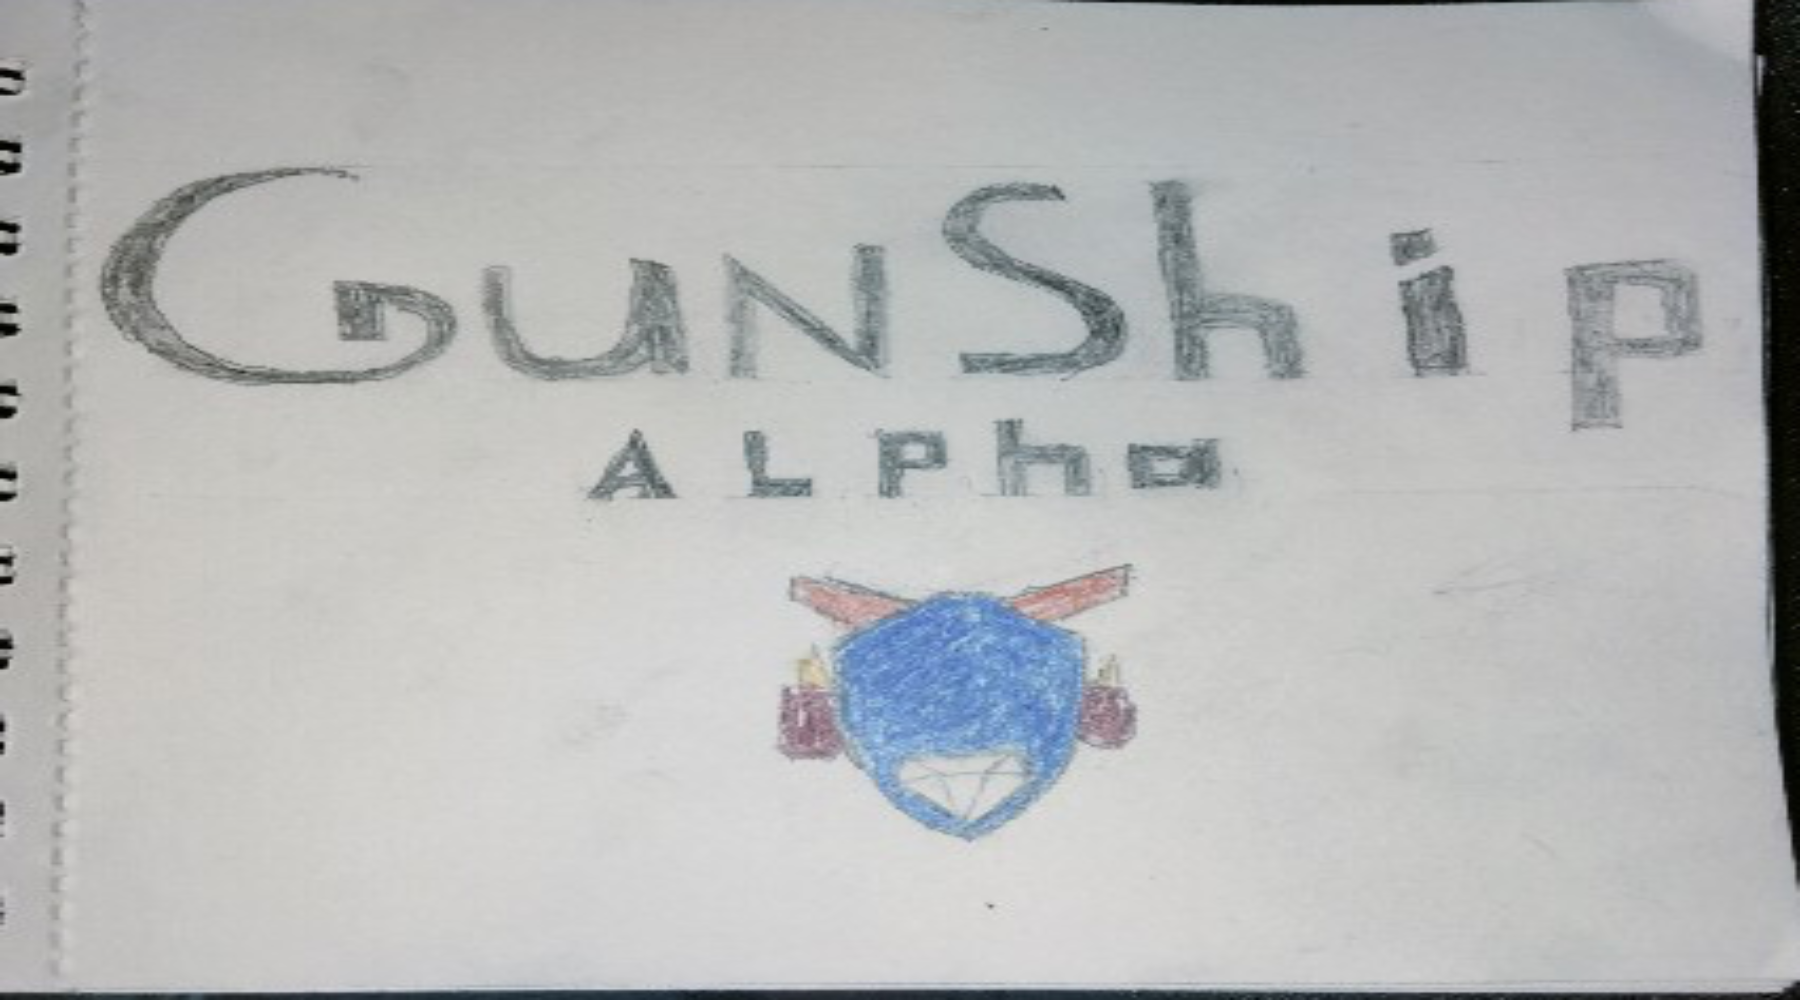 GunShip
ALPha